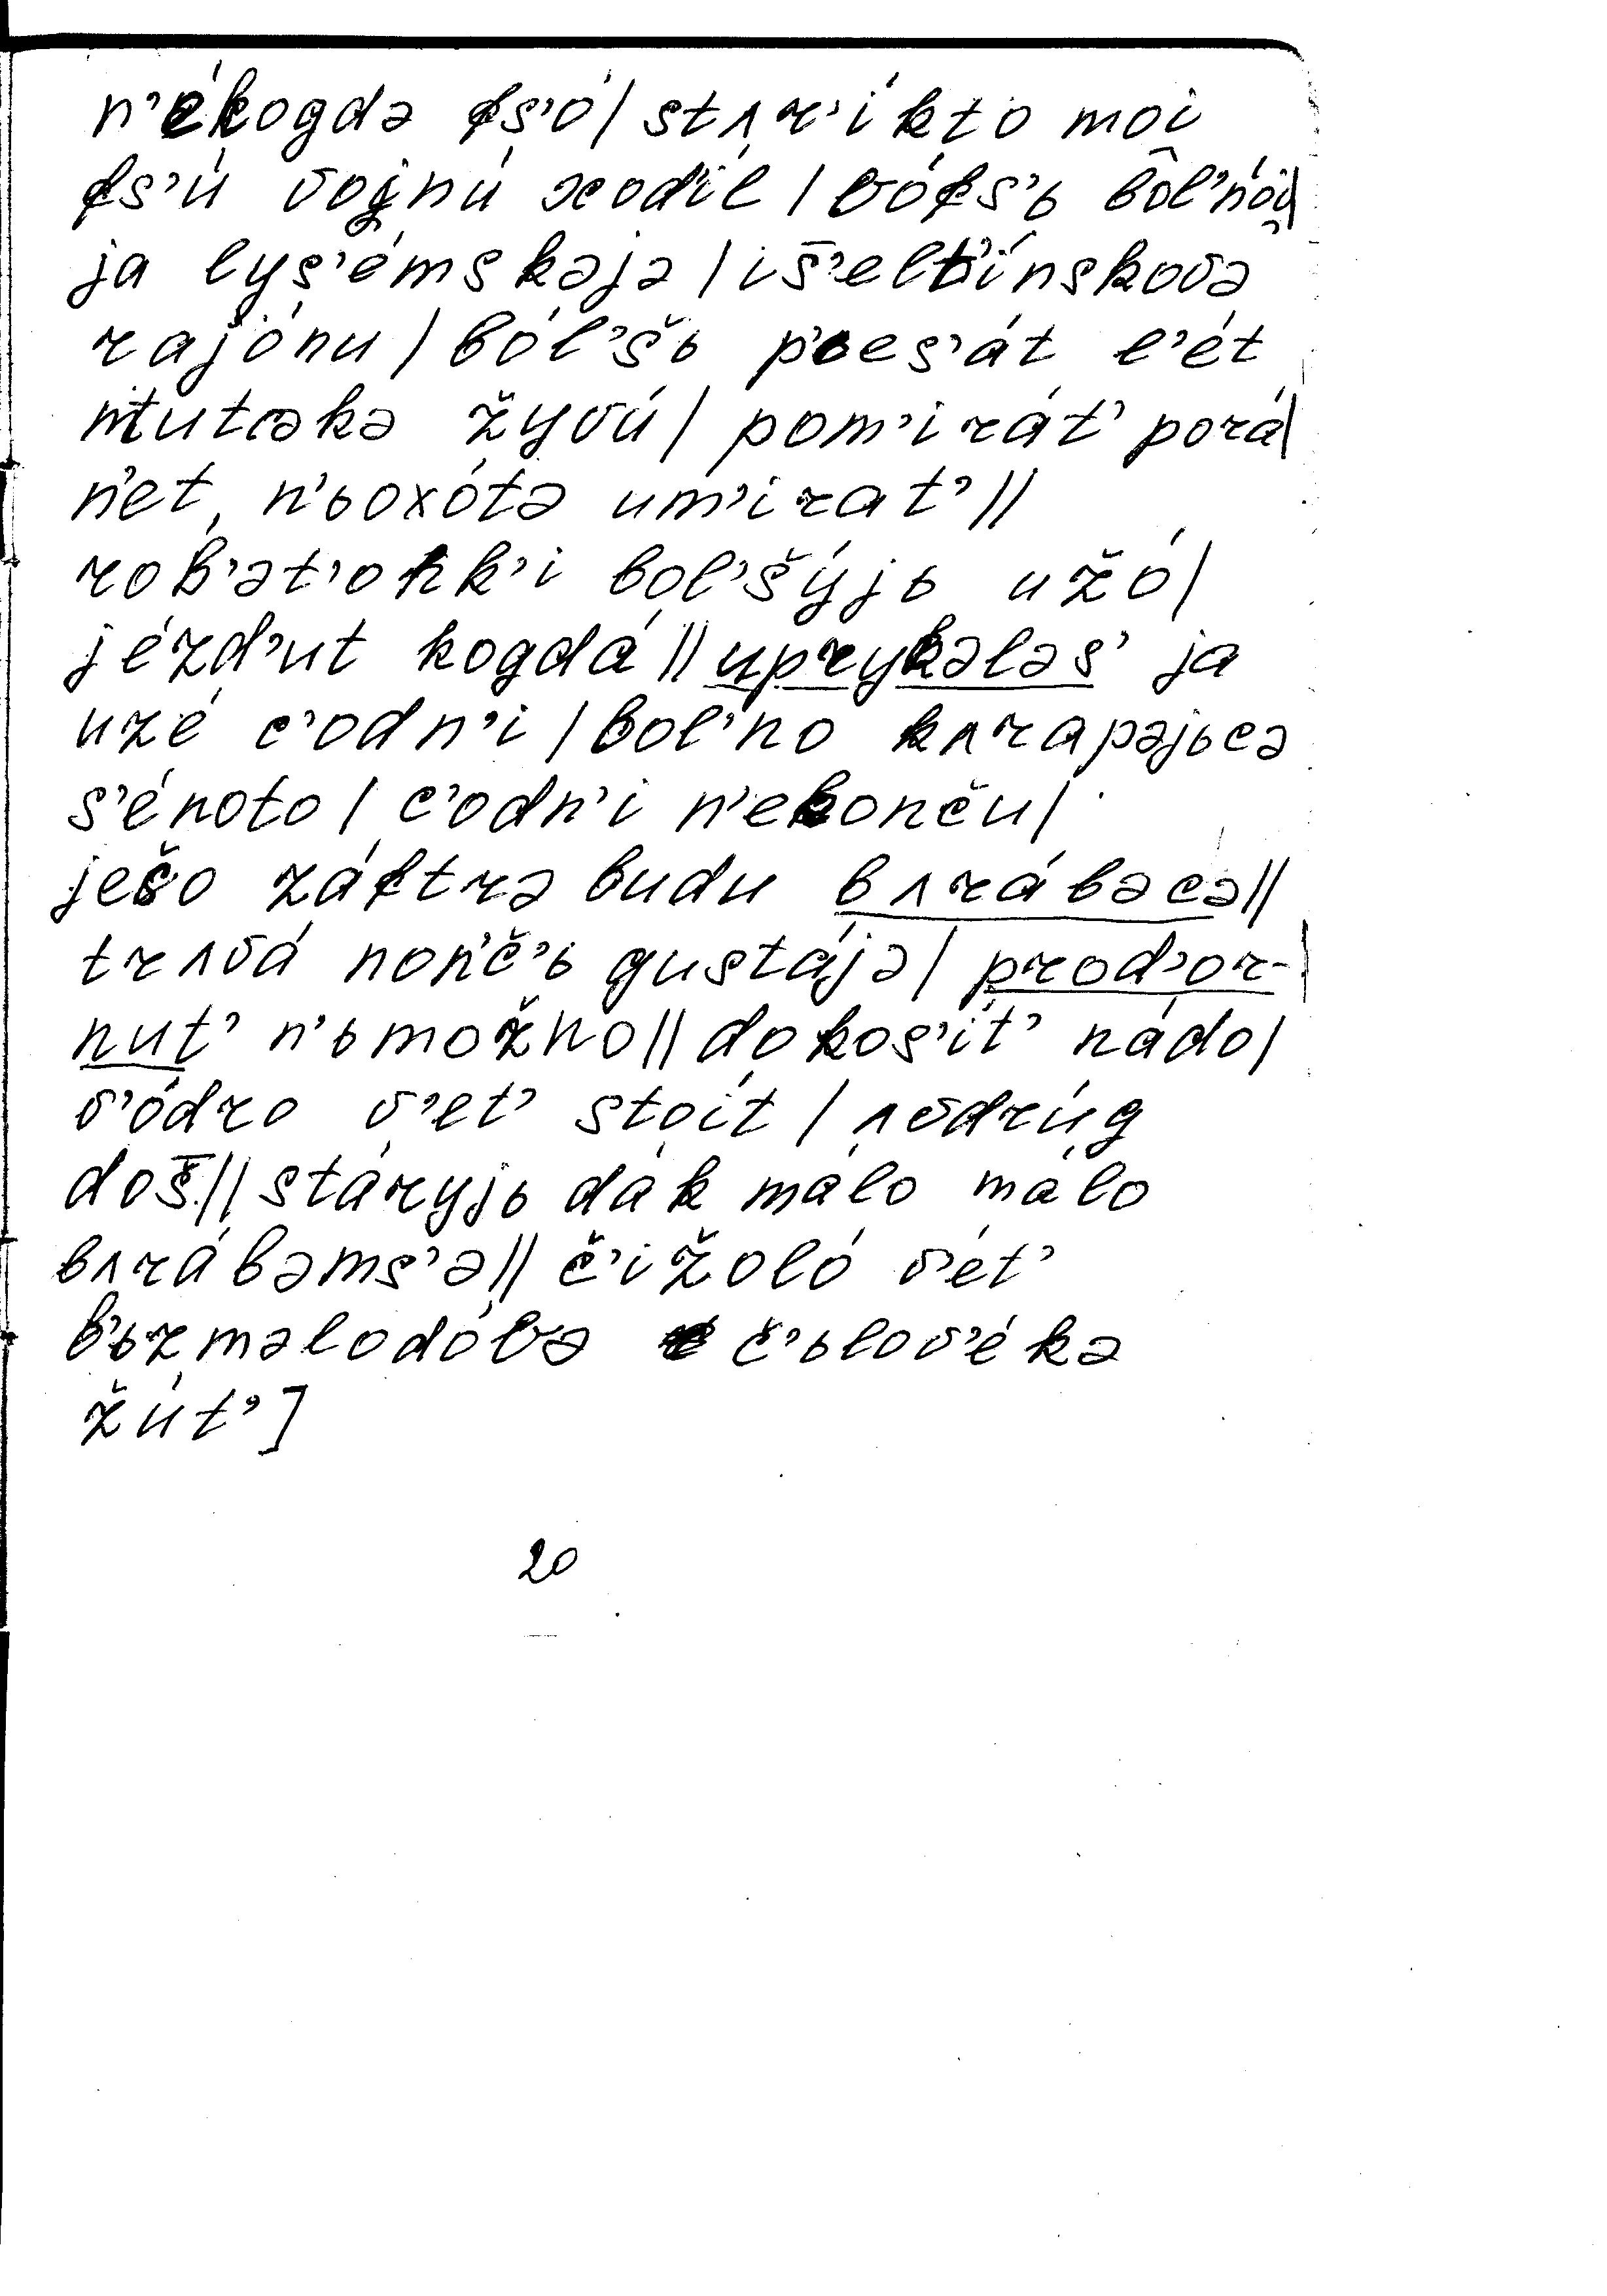 n’е́kogdə fs’ó| stʌr’íkto moi
fs’ú vojnú xod’íl | vófs’ь bôl’nói|
ja lys’émskəjə | iš̅’elb’ínskovə
rajónu | ból’šь p’es’át l’ét
tutəkə žyvú| pom’irát’ porá|
n’et, n’ьoxótə um’irat’||
rob’ət’onk’i bol’šýjь užó|
jézd’ut kogdá || uprykələs’ ja
uzé c’odn’i | bol’no kʌrapəjьcə
s’énoto | c’odn’i n’ekonču|
ješo záftrə budu bʌrábəcə||
trʌvá non’č’ь gustájə| prod’or-|
nut’ n’ьmožno|| dokos’ít’ nádo|
v’ódro v’et’ stoít | ʌvdrúg
doš̅|| stáryjь dák málo málo
bʌrábəms’ə|| č’ižoló v’ét’
b’ьzməlodóvə č’ьlov’ékə
žút’]
20